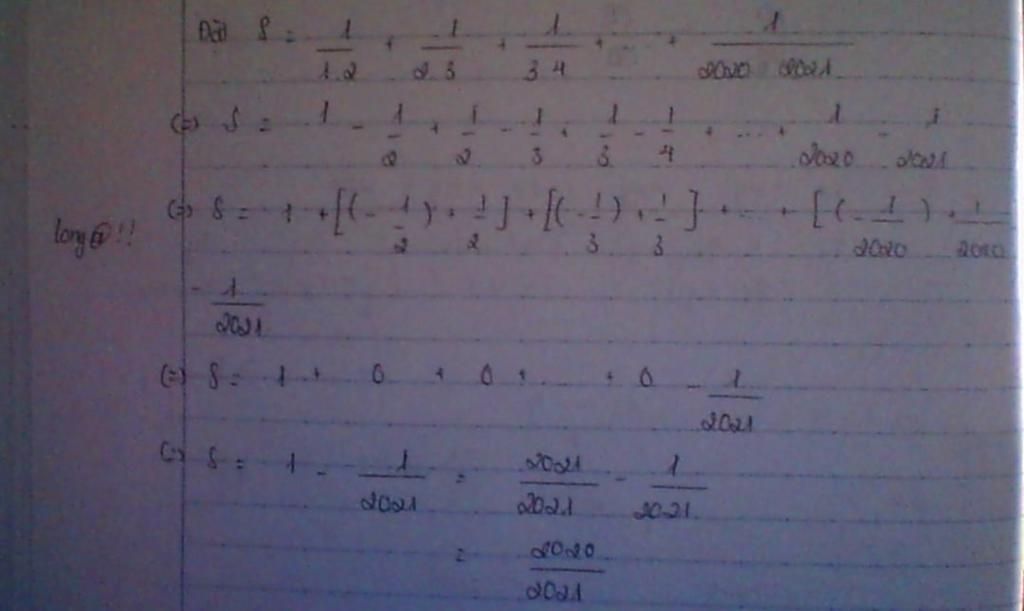 Đặt S = 1/1.2 + 1/2.3 + 1/3.4 + ... + 1/2020.2021
(=) S = 1 - 1/2 + 1/2 - 1/3 + 1/3 - 1/4 + ... + 1/2020 - 1/2021
(=) S = 1 + [(-1/2) + 1/2] + [(-1/3) + 1/3] + ... + [(-1/2020) + 1/2020
long@!!
- 1/2021
(=) S = 1 + 0 + 0 + ... + 0 - 1/2021
(=) S = 1 - 1/2021 = 2021/2021 - 1/2021
= 2020/2021